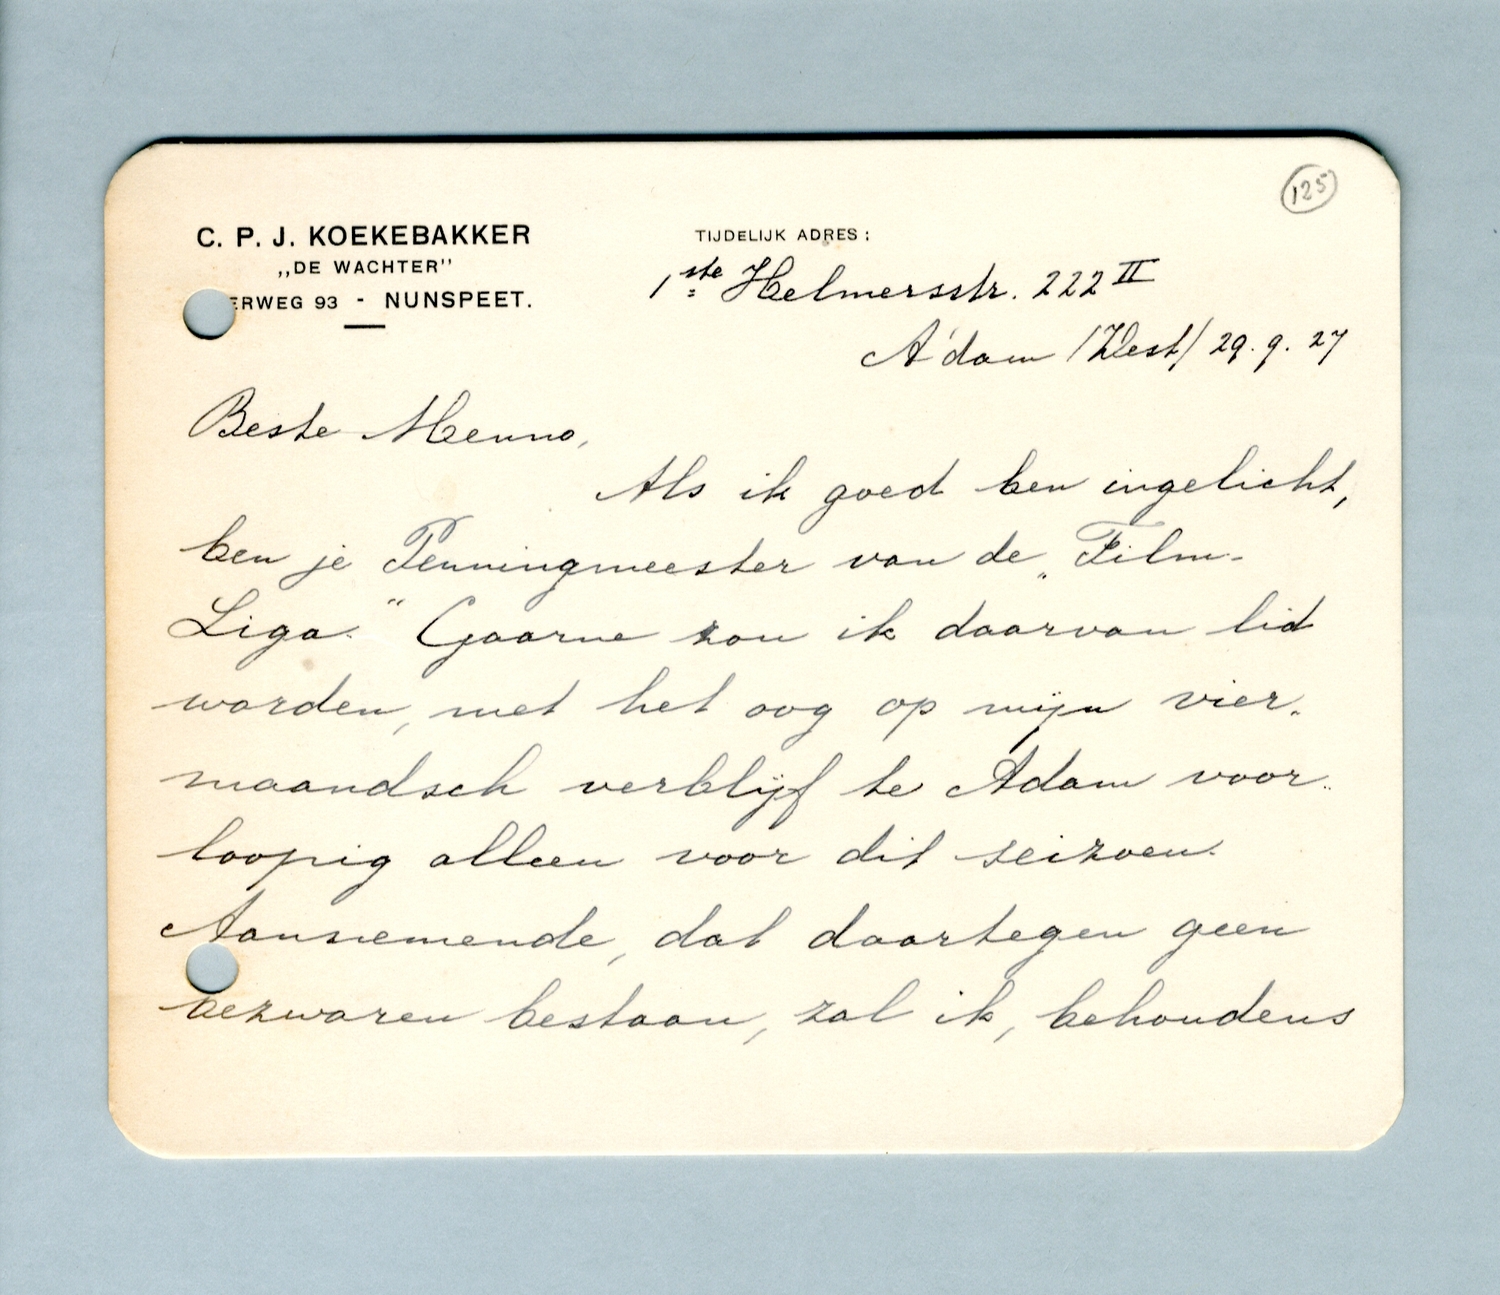 125
C. P. J. KOEKEBAKKER
„DE WACHTER"
ERWEG 93 - NUNSPEET.
TIJDELIJK ADRES:
1ste Helmersstr. 222 II
A'dam /West/ 29.9.27
Beste Menno,
Als ik goed ben ingelicht,
ben je Penningmeester van de „Film-
Liga." Gaarne zou ik daarvan lid
worden, met het oog op mijn vier-
maandsch verblijf te Adam voor-
loopig alleen voor dit seizoen.
Aannemende, dat daartegen geen
bezwaren bestaan, zal ik, behoudens